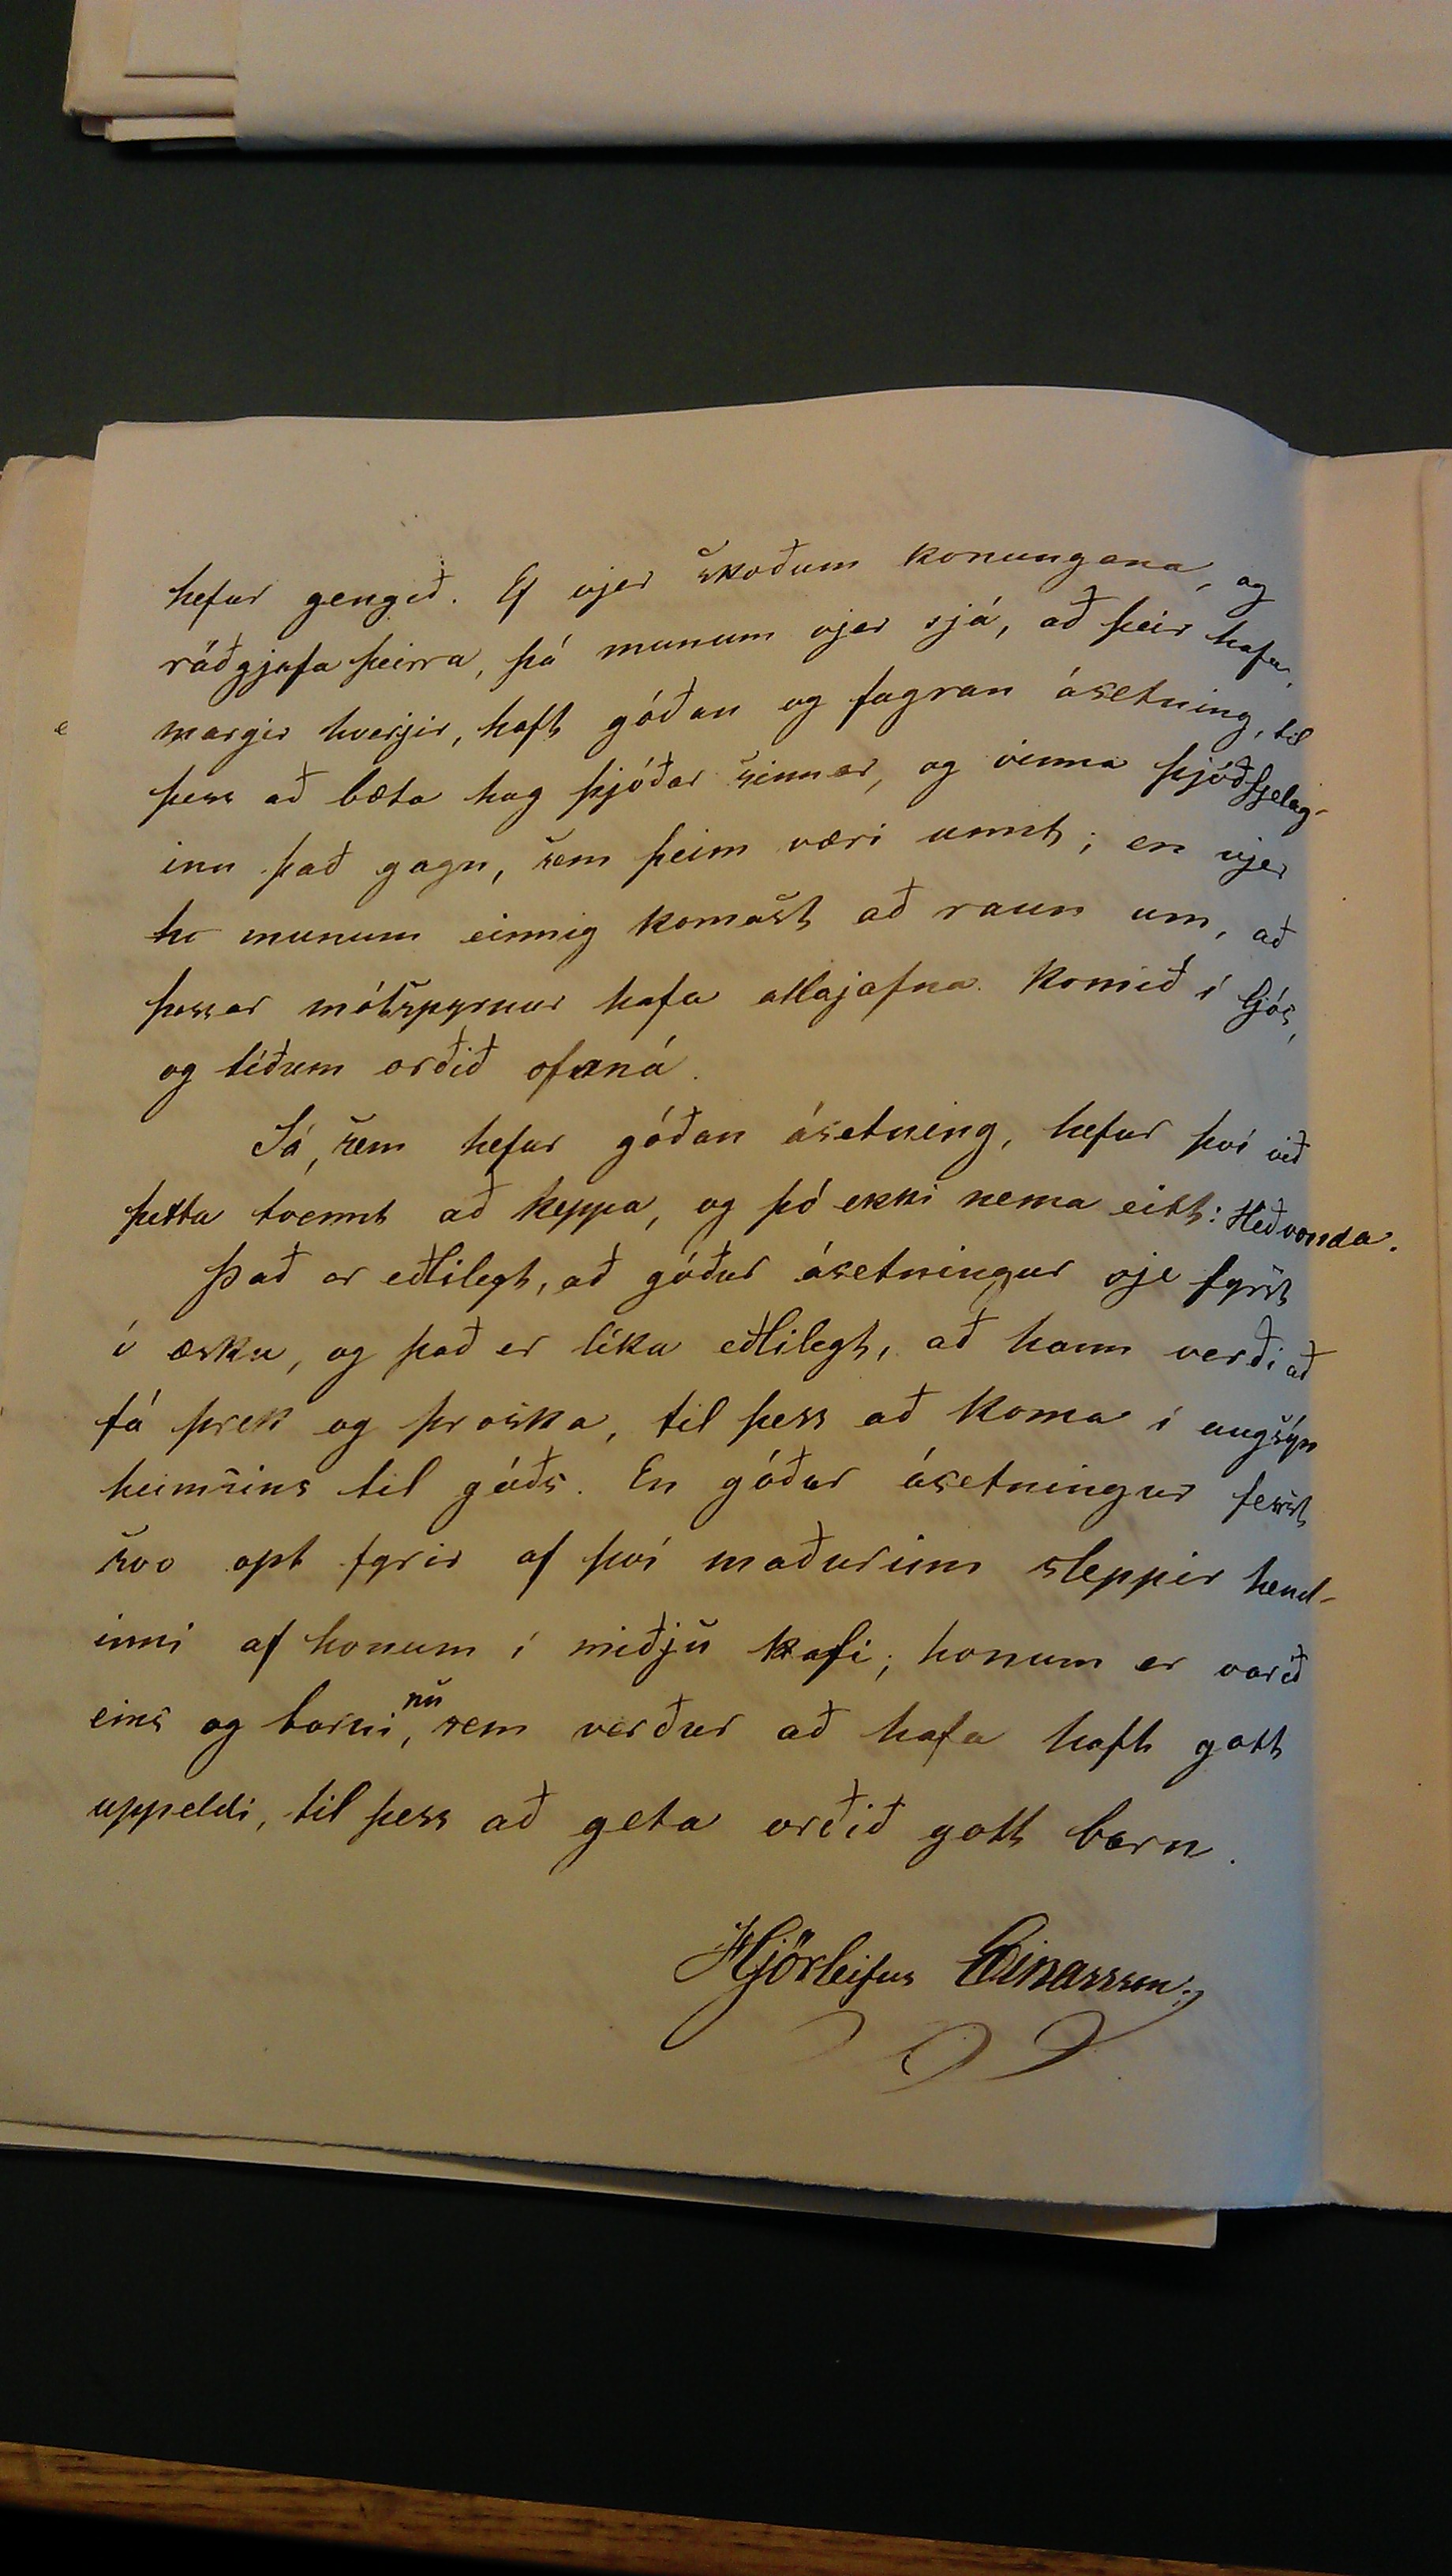 hefur gengið. Ef vjer skoðum konungana, og
ráðgjafa þeirra, þá munum vjer sjá, að þeir hafa,
margir hverjir, haft góðan og fagran ásetning, til
þess að bæta hag þjóðar sinnar, og vinna þjóðfjelag-
inu það gagn, sem þeim væri unnt; en vjer
munum einnig komast að raun um, að
þessar mótspyrnur hafa allajafna komið í ljós,
og tíðum orðið ofaná.
Sá, sem hefur góðan ásetning, hefur því við
þetta tvennt að keppa, og þó ekki nema eitt: Hið vonda.
Það er eðlilegt, að góður ásetningur sje fyrst
í æsku, og það er líka eðlilegt, að hann verði að
fá þrek og þroska, til þess að koma í augsýn
heimsins til góðs. En góður ásetningur ferst
svo opt fyrir af því maðurinn sleppir hend-
inni af honum í miðju kafi; honum er varið
eins og barninu, sem verður að hafa haft gott
uppeldi, til þess að geta orðið gott barn.
Hjörleifur Einarsson